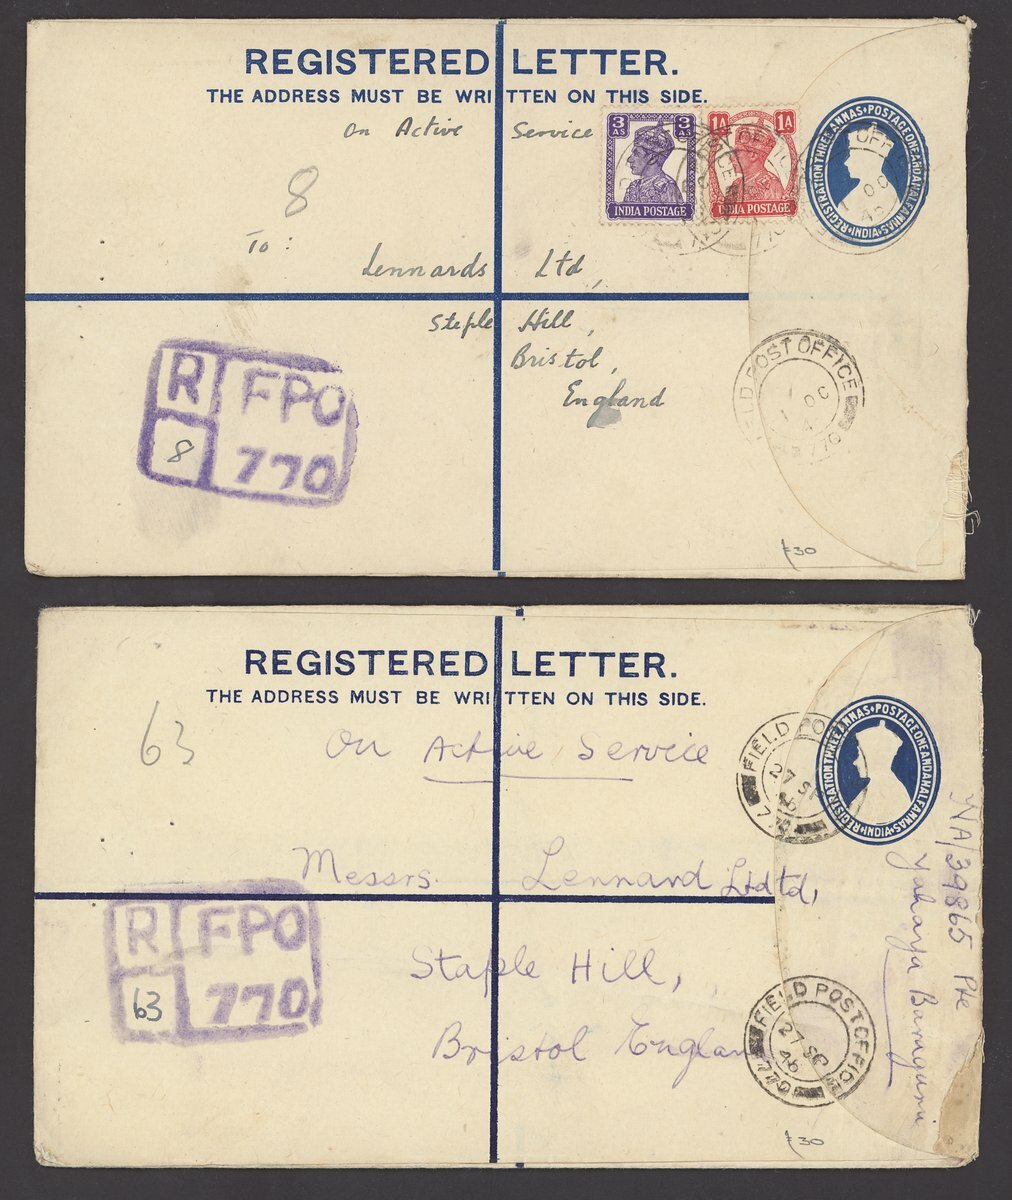 REGISTERED LETTER.
THE ADDRESS MUST BE WRITTEN ON THIS SIDE.
On Active Service
3 AS 3 AS
INDIA POSTAGE
1A 1A
INDIA POSTAGE
REGISTRATION THREE ANNAS • POSTAGE ONE AND A HALF ANNAS • INDIA
8
To:
Lennards Ltd,
Steple Hill,
Bristol,
England
R FPO
8 770
FIELD POST OFFICE
OC
770
£30
REGISTERED LETTER.
THE ADDRESS MUST BE WRITTEN ON THIS SIDE.
63
On Active Service
FIELD PO
27 SP
46
770
REGISTRATION THREE ANNAS • POSTAGE ONE AND A HALF ANNAS • INDIA
Messrs. Lennard Ltdtd,
Staple Hill,
Bristol Englan
R FPO
63 770
FIELD POST OFFICE
27 SP
46
770
39865 Pte
Yaharya
£30